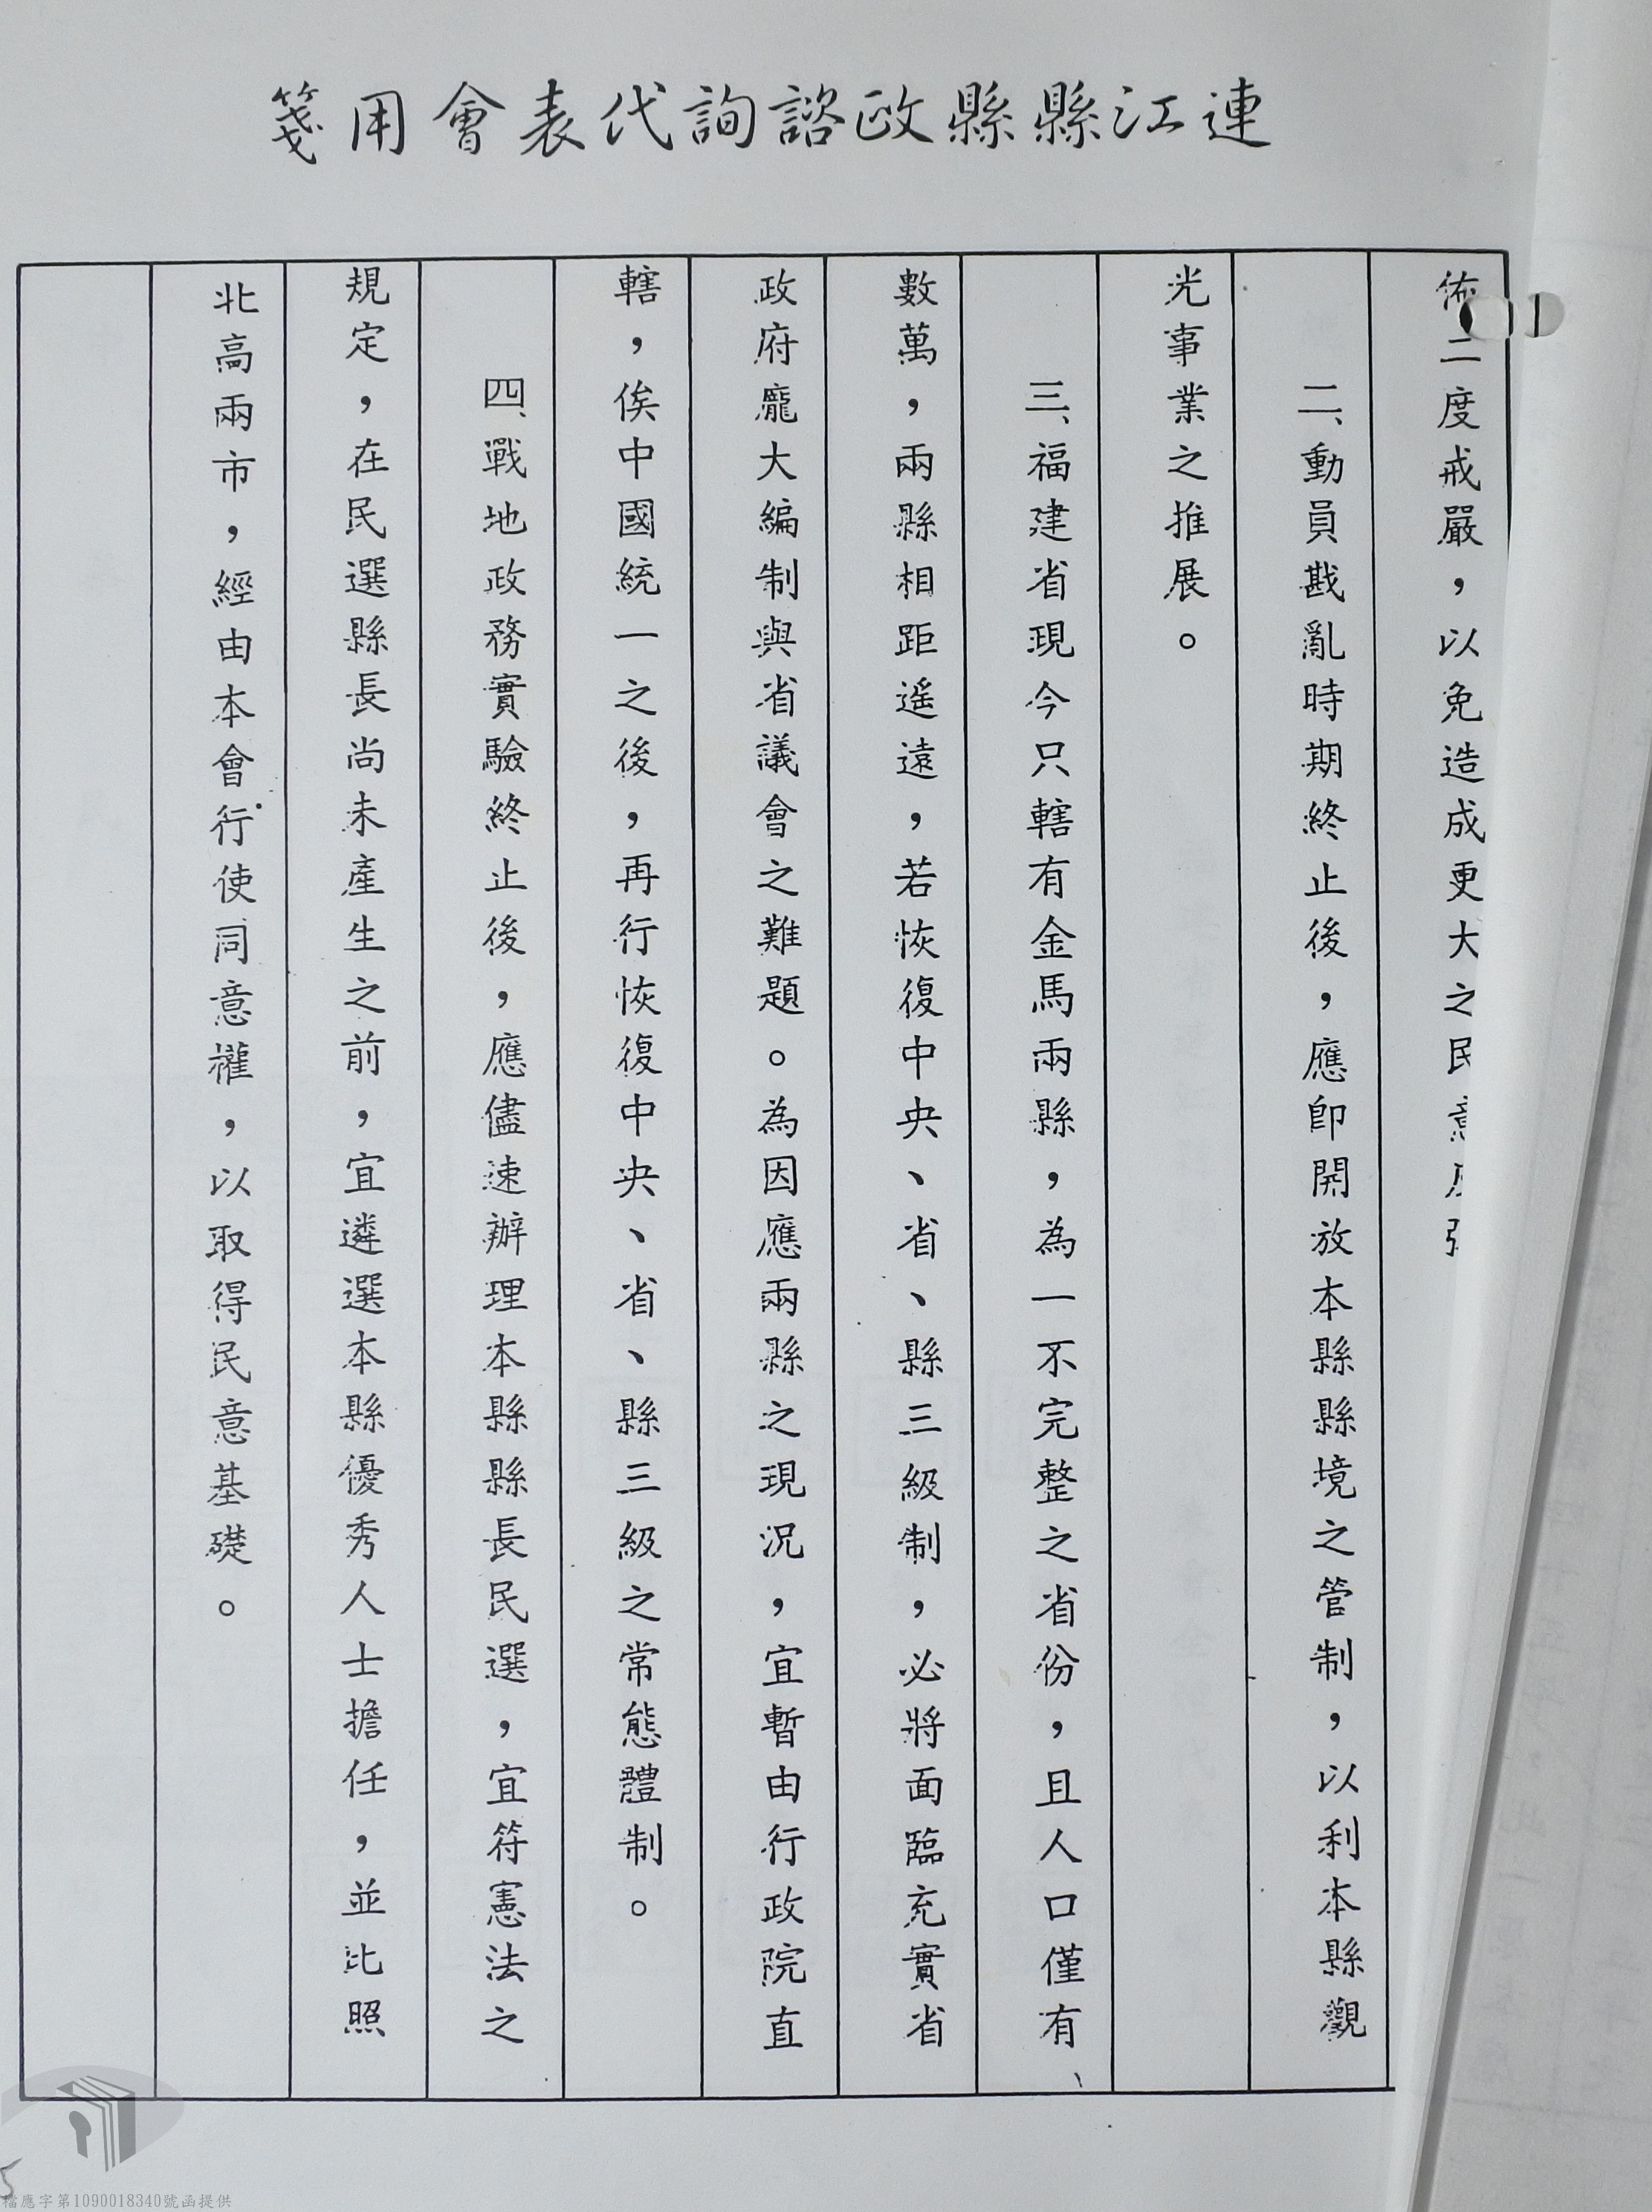 連江縣縣政諮詢代表會用箋
佈二度戒嚴，以免造成更大之民意反彈
二、動員戡亂時期終止後，應即開放本縣縣境之管制，以利本縣觀
光事業之推展。
三、福建省現今只轄有金馬兩縣，為一不完整之省份，且人口僅有
數萬，兩縣相距遥遠，若恢復中央、省、縣三級制，必將面臨充實省
政府龐大編制與省議會之難題。為因應兩縣之現況，宜暫由行政院直
轄，俟中國統一之後，再行恢復中央、省、縣三級之常態體制。
四、戰地政務實驗終止後，應儘速辦理本縣縣長民選，宜符憲法之
規定，在民選縣長尚未產生之前，宜遴選本縣優秀人士擔任，並比照
北高兩市，經由本會行使同意權，以取得民意基礎。
5
檔應字第1090018340號函提供